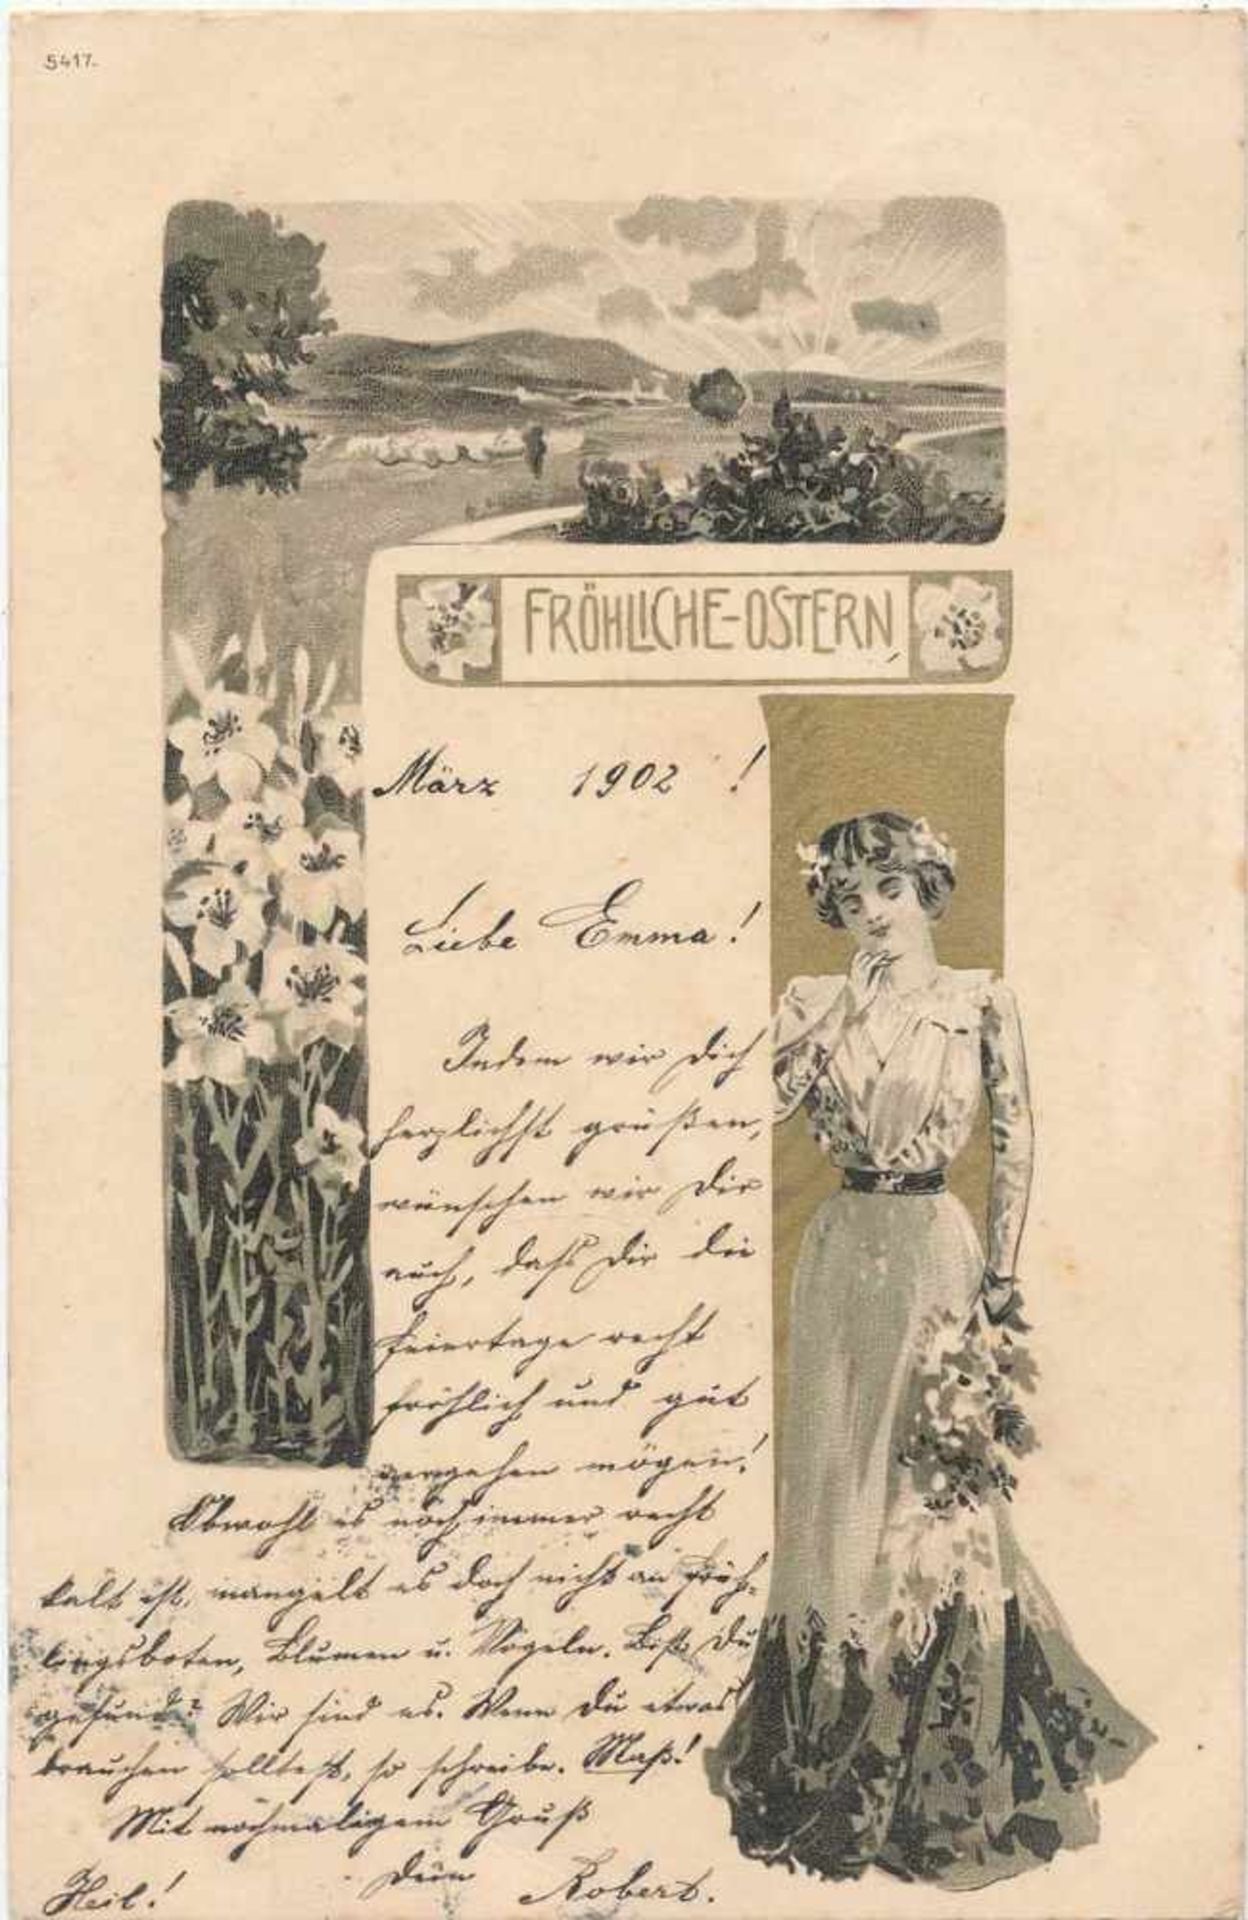 5417.
FRÖHLICHE-OSTERN
März 1902 !
Liebe Emma!
Indem wir Dich
herzlichst grüßen,
wünschen wir Dir
auch, daß Dir die
Feiertage recht
fröhlich und gut
vergehen mögen!
Obwohl es noch immer recht
kalt ist, mangelt es doch nicht an Früh-
lingsboten, Blumen u. Vögeln. Bist Du
gesund? Wir sind es. Wenn Du etwas
brauchen solltest, so schreibe.
Mit nochmaligem Gruß
Dein Robert.
Heil!